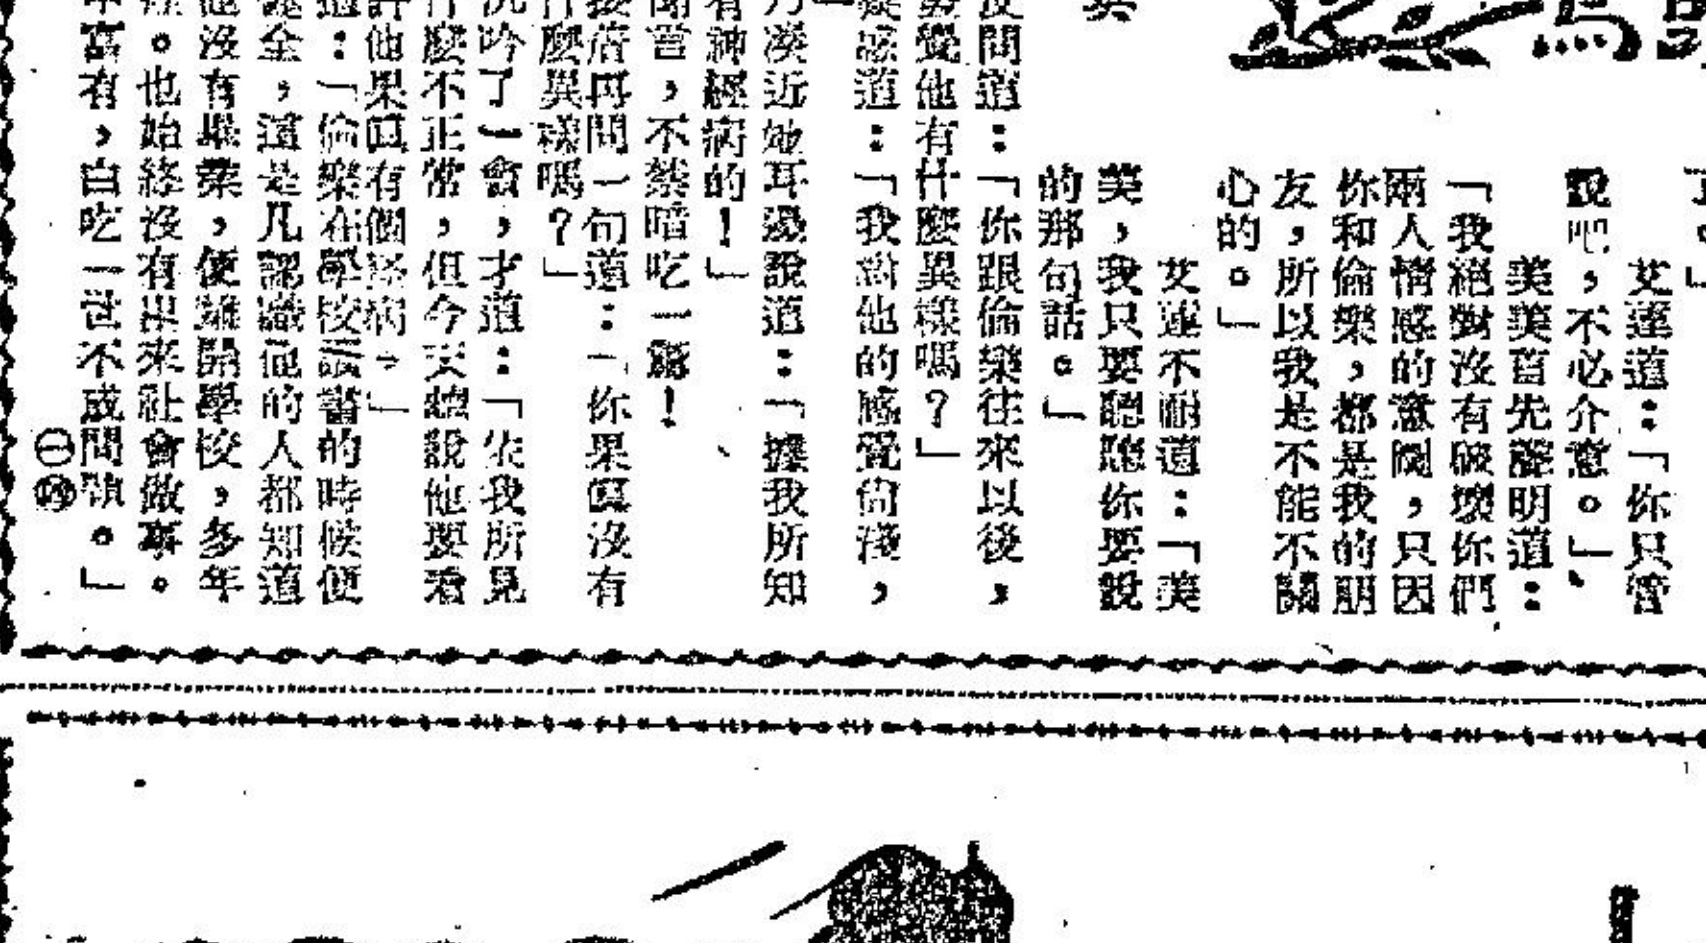 了。」
艾蓮道：「你只管
說吧，不必介意。」
美美首先聲明道：
「我絕對沒有破壞你們
兩人情感的意圖，只因
你和倫樂，都是我的朋
友，所以我是不能不關
心的。」
艾蓮不耐道：「美
美，我只要聽聽你要說
的那句話。」
反問道：「你跟倫樂往來以後，
覺他有什麼異樣嗎？」
疑惑道：「我對他的感覺尚淺，
乃湊近她耳邊說道：「據我所知
有神經病的！」
聞言，不禁暗吃一驚！
接着再問一句道：「你果真沒有
什麼異樣嗎？」
沉吟了一會，才道：「依我所見
什麼不正常，但今天聽說他要看
許他果真有個疾病。」
道：「倫樂在學校讀書的時候便
健全，這是凡認識他的人都知道
他沒有畢業，便離開學校，多年
。也始終沒有出來社會做事。
富有，白吃一世不成問題。」
㊀㊃